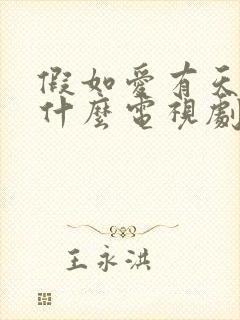 假如愛有天
什麼電視劇
王永洪